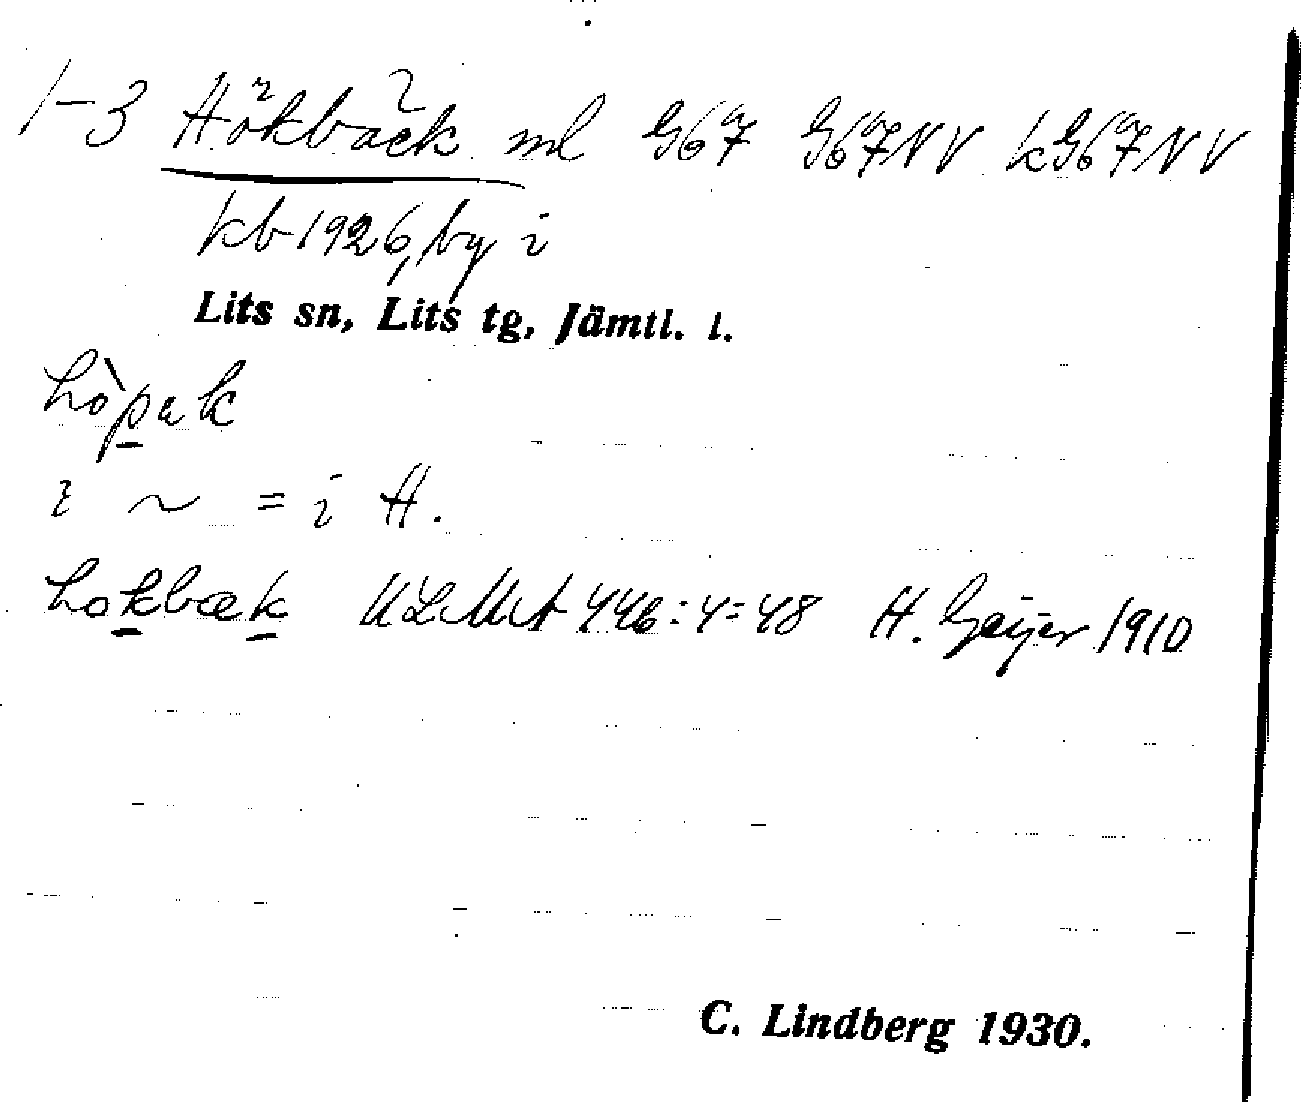 1-3 Hökbäck ml G67 G67NV kG67NV
kb 1926, by i
Lits sn, Lits tg, Jämtl. l.
i ~ = i H.
ULMA 446:4:48 H. Geijer 1910
C. Lindberg 1930.